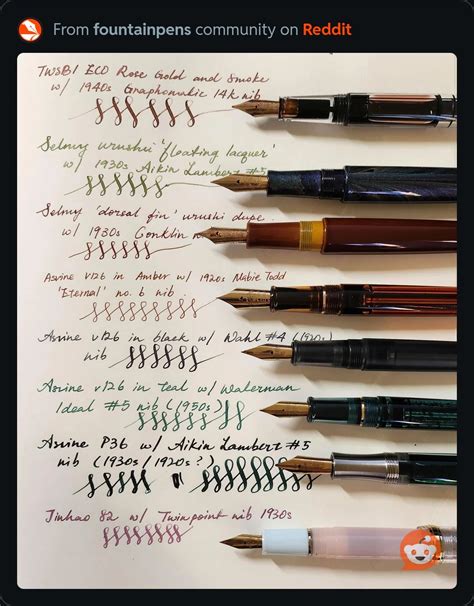 From fountainpens community on Reddit
TWSBI ECO Rose Gold and Smoke
w/ 1940s Graphomatic 14k nib
Selmy urushi 'floating lacquer'
w/ 1930s Aikin Lambert #5
Selmy 'dorsal fin' urushi dupe
w/ 1930s Conklin
Asvine V126 in Amber w/ 1920s Mabie Todd
'Eternal' no. 6 nib
Asvine V126 in black w/ Wahl #4 (1920s)
nib
Asvine V126 in teal w/ Waterman
Ideal #5 nib (1950s)
Asvine P36 w/ Aikin Lambert #5
nib (1930s/1920s?)
Jinhao 82 w/ Twinpoint nib 1930s